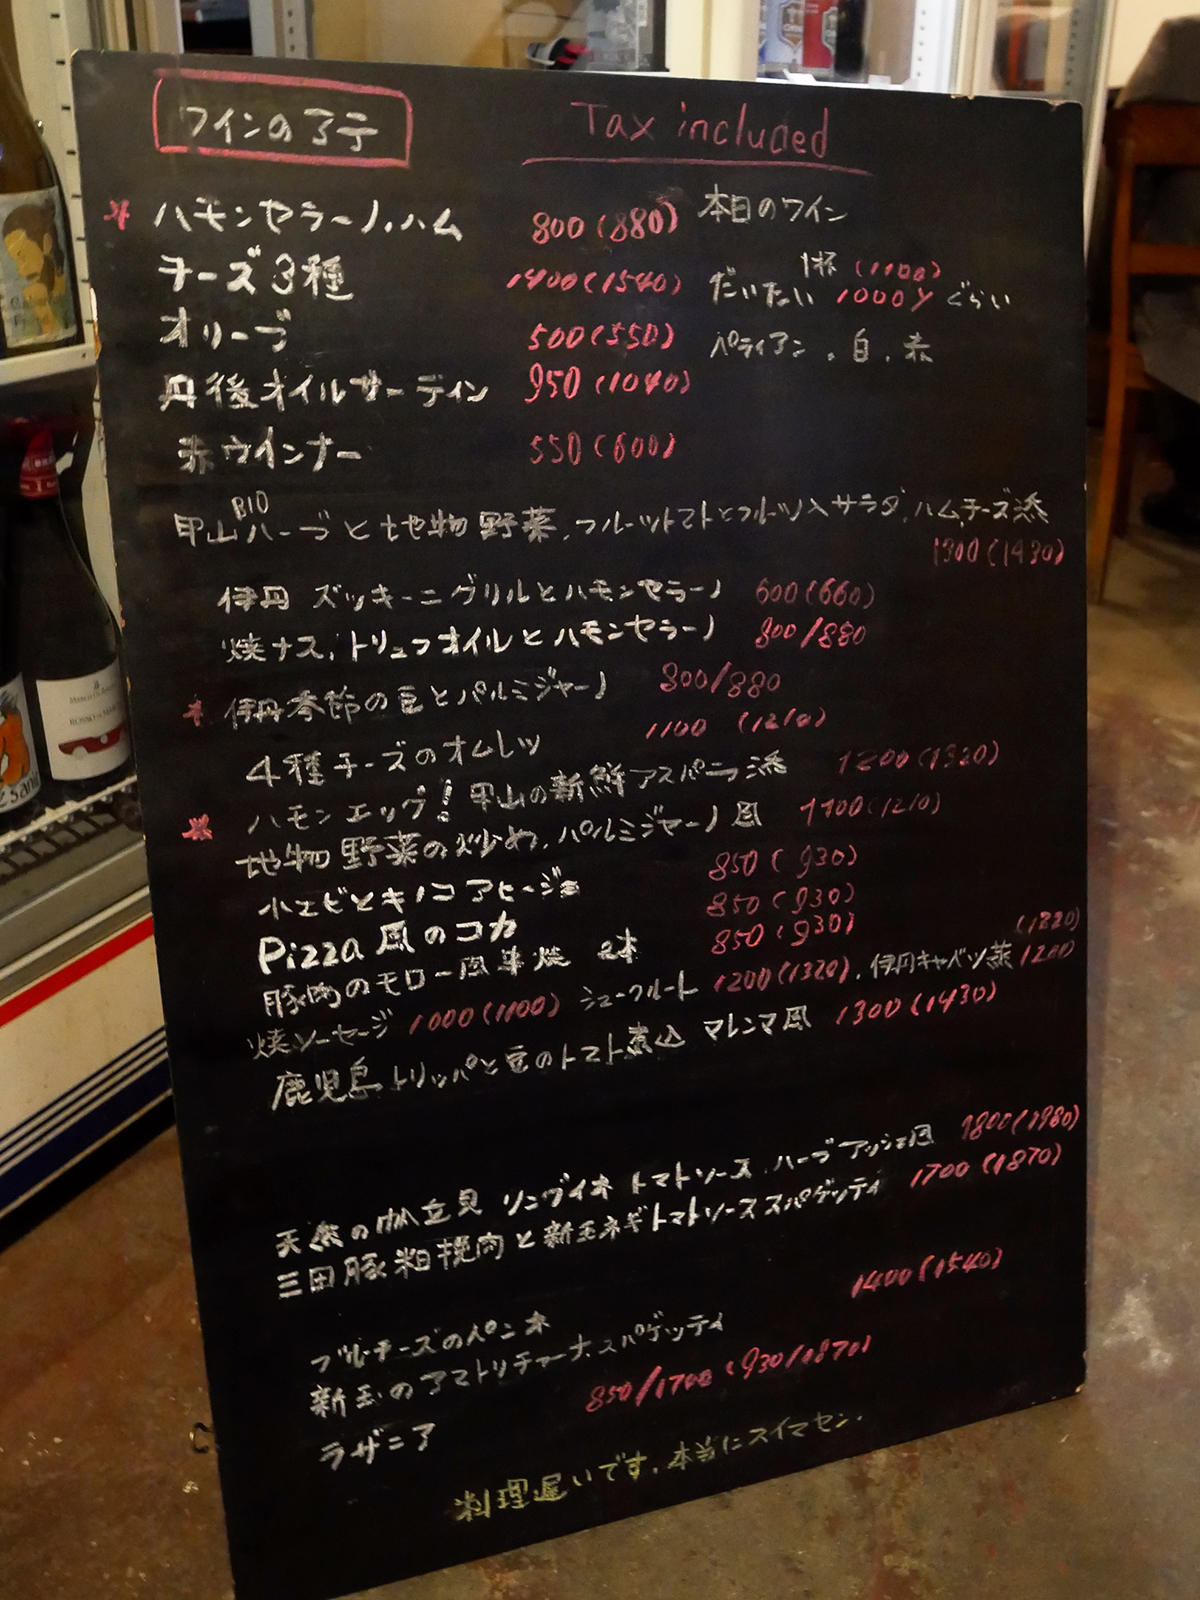 ワインのアテ
Tax included
ハモンセラーノ、ハム 800(880)
チーズ3種 1400(1540)
オリーブ 500(550)
丹後オイルサーディン 950(1040)
赤ウインナー 550(600)
本日のワイン
1杯 (1100)
だいたい 1000y ぐらい
パティアン、白、赤
BIO
甲山ハーブと地物野菜、フルーツトマトとフルーツ入サラダ、ハム、チーズ添
1300(1430)
伊丹 ズッキーニグリルとハモンセラーノ 600(660)
焼ナス、トリュフオイルとハモンセラーノ 800/880
伊丹季節の豆とパルミジャーノ 800/880
4種チーズのオムレツ 1100 (1210)
ハモンエッグ!甲山の新鮮アスパラ添 1200(1320)
地物野菜の炒め、パルミジャーノ風 1100(1210)
小エビとキノコアヒージョ 850(930)
Pizza風のコカ 850(930)
豚肉のモロー風串焼 2本 850(930)
焼ソーセージ 1000(1100) シュークルート 1200(1320)、伊丹キャベツ蒸 1200 (1320)
鹿児島トリッパと豆のトマト煮込 マレンマ風 1300(1430)
天然の帆立貝 リングイネ トマトソース、ハーブアッシェ風 1800(1980)
三田豚粗挽肉と新玉ネギトマトソーススパゲッティ 1700(1870)
ブルーチーズのペンネ 1400(1540)
新玉のアマトリチャーナスパゲッティ
ラザニア 850/1700(930/1870)
料理遅いです、本当にスイマセン.